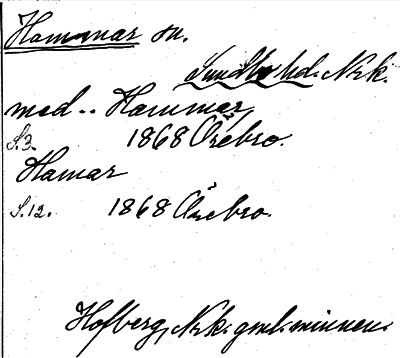 Hammar sn.
Sundbo hd. Nrk.
med .. Hammar,
S.3. 1868 Örebro.
Hamar
S.12. 1868 Örebro.
Hofberg, Nrk. gml. minnen.